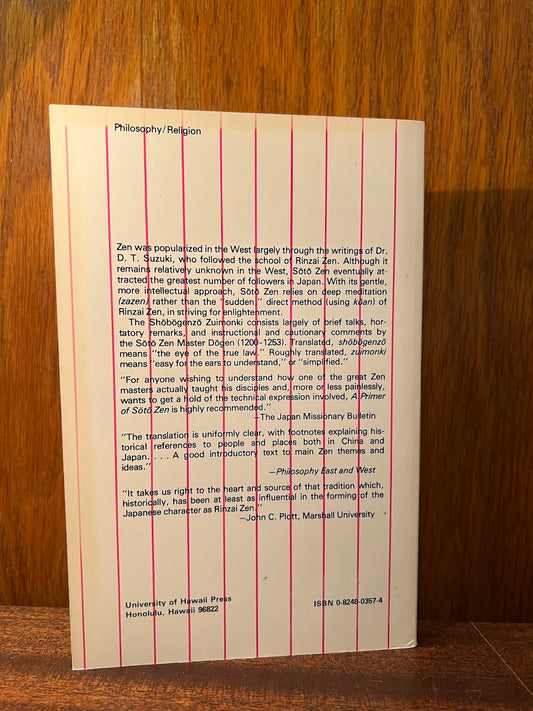 Philosophy/Religion
Zen was popularized in the West largely through the writings of Dr.
D. T. Suzuki, who followed the school of Rinzai Zen. Although it
remains relatively unknown in the West, Sōtō Zen eventually at-
tracted the greatest number of followers in Japan. With its gentle,
more intellectual approach, Sōtō Zen relies on deep meditation
(zazen) rather than the "sudden," direct method (using kōan) of
Rinzai Zen, in striving for enlightenment.
The Shōbōgenzō Zuimonki consists largely of brief talks, hor-
tatory remarks, and instructional and cautionary comments by
the Sōtō Zen Master Dōgen (1200–1253). Translated, shōbōgenzō
means "the eye of the true law." Roughly translated, zuimonki
means "easy for the ears to understand," or "simplified."
"For anyone wishing to understand how one of the great Zen
masters actually taught his disciples and, more or less painlessly,
wants to get a hold of the technical expression involved, A Primer
of Sōtō Zen is highly recommended."
—The Japan Missionary Bulletin
"The translation is uniformly clear, with footnotes explaining his-
torical references to people and places both in China and
Japan. . . . A good introductory text to main Zen themes and
ideas."
—Philosophy East and West
"It takes us right to the heart and source of that tradition which,
historically, has been at least as influential in the forming of the
Japanese character as Rinzai Zen."
—John C. Plott, Marshall University
University of Hawaii Press
Honolulu, Hawaii 96822
ISBN 0-8248-0357-4